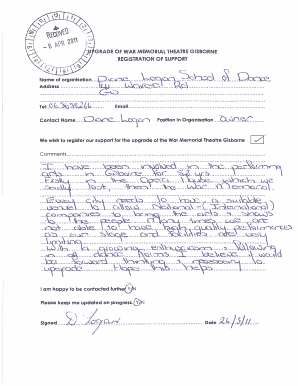 RECEIVED
- 8 APR 2011
UPGRADE OF WAR MEMORIAL THEATRE GISBORNE
REGISTRATION OF SUPPORT
Name of organisation Diane Logan School of Dance
Address
Tel Email
Contact Name Diane Logan Position in Organisation Owner
We wish to register our support for the upgrade of the War Memorial Theatre Gisborne ✓
Comments
I have been involved in the performing
arts in Gisborne for
in the Opera House which we
sadly lost, then the War Memorial.
Every city needs to have a suitable
venue to allow National & International
companies to bring the arts & shows
to the people many times we are
not able to have high quality performances
as our stage and facilities are very
limiting.
With a growing enthusiasm & following
in all dance forms I believe it would
be forward thinking & necessary to
upgrade. Hope this helps
I am happy to be contacted further Y/N
Please keep me updated on progress Y/N
Signed D Logan Date 26/3/11